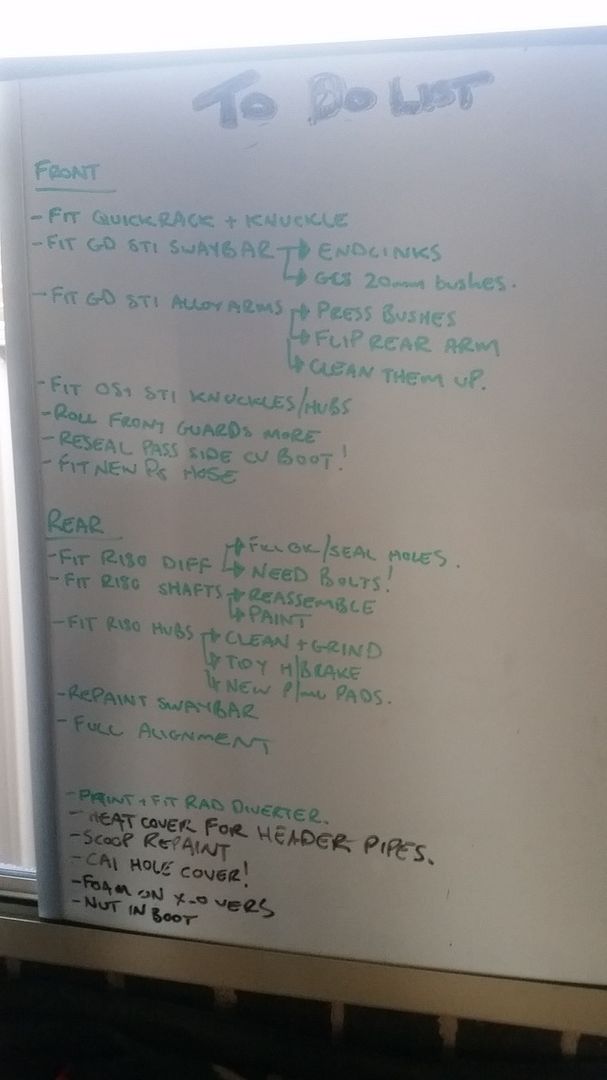 TO DO LIST
FRONT
- FIT QUICKRACK + KNUCKLE
- FIT GD STI SWAYBAR → ENDLINKS
→ 20mm bushes.
- FIT GD STI ALLOY ARMS → PRESS BUSHES
→ FLIP REAR ARM
→ CLEAN THEM UP.
- FIT STI KNUCKLES/HUBS
- ROLL FRONT GUARDS MORE
- RESEAL PASS SIDE CV BOOT!
- FIT NEW PS HOSE
REAR
- FIT R180 DIFF → /SEAL HOLES.
→ NEED BOLTS!
- FIT R180 SHAFTS → REASSEMBLE
→ PAINT
- FIT R180 HUBS → CLEAN + GRIND
→ TIDY H/BRAKE
→ NEW PADS.
- REPAINT SWAYBAR
- FULL ALIGNMENT
- PAINT + FIT RAD DIVERTER.
- HEAT COVER FOR HEADER PIPES.
- SCOOP REPAINT
- CAI HOLE COVER!
- FOAM ON X-OVERS
- NUT IN BOOT